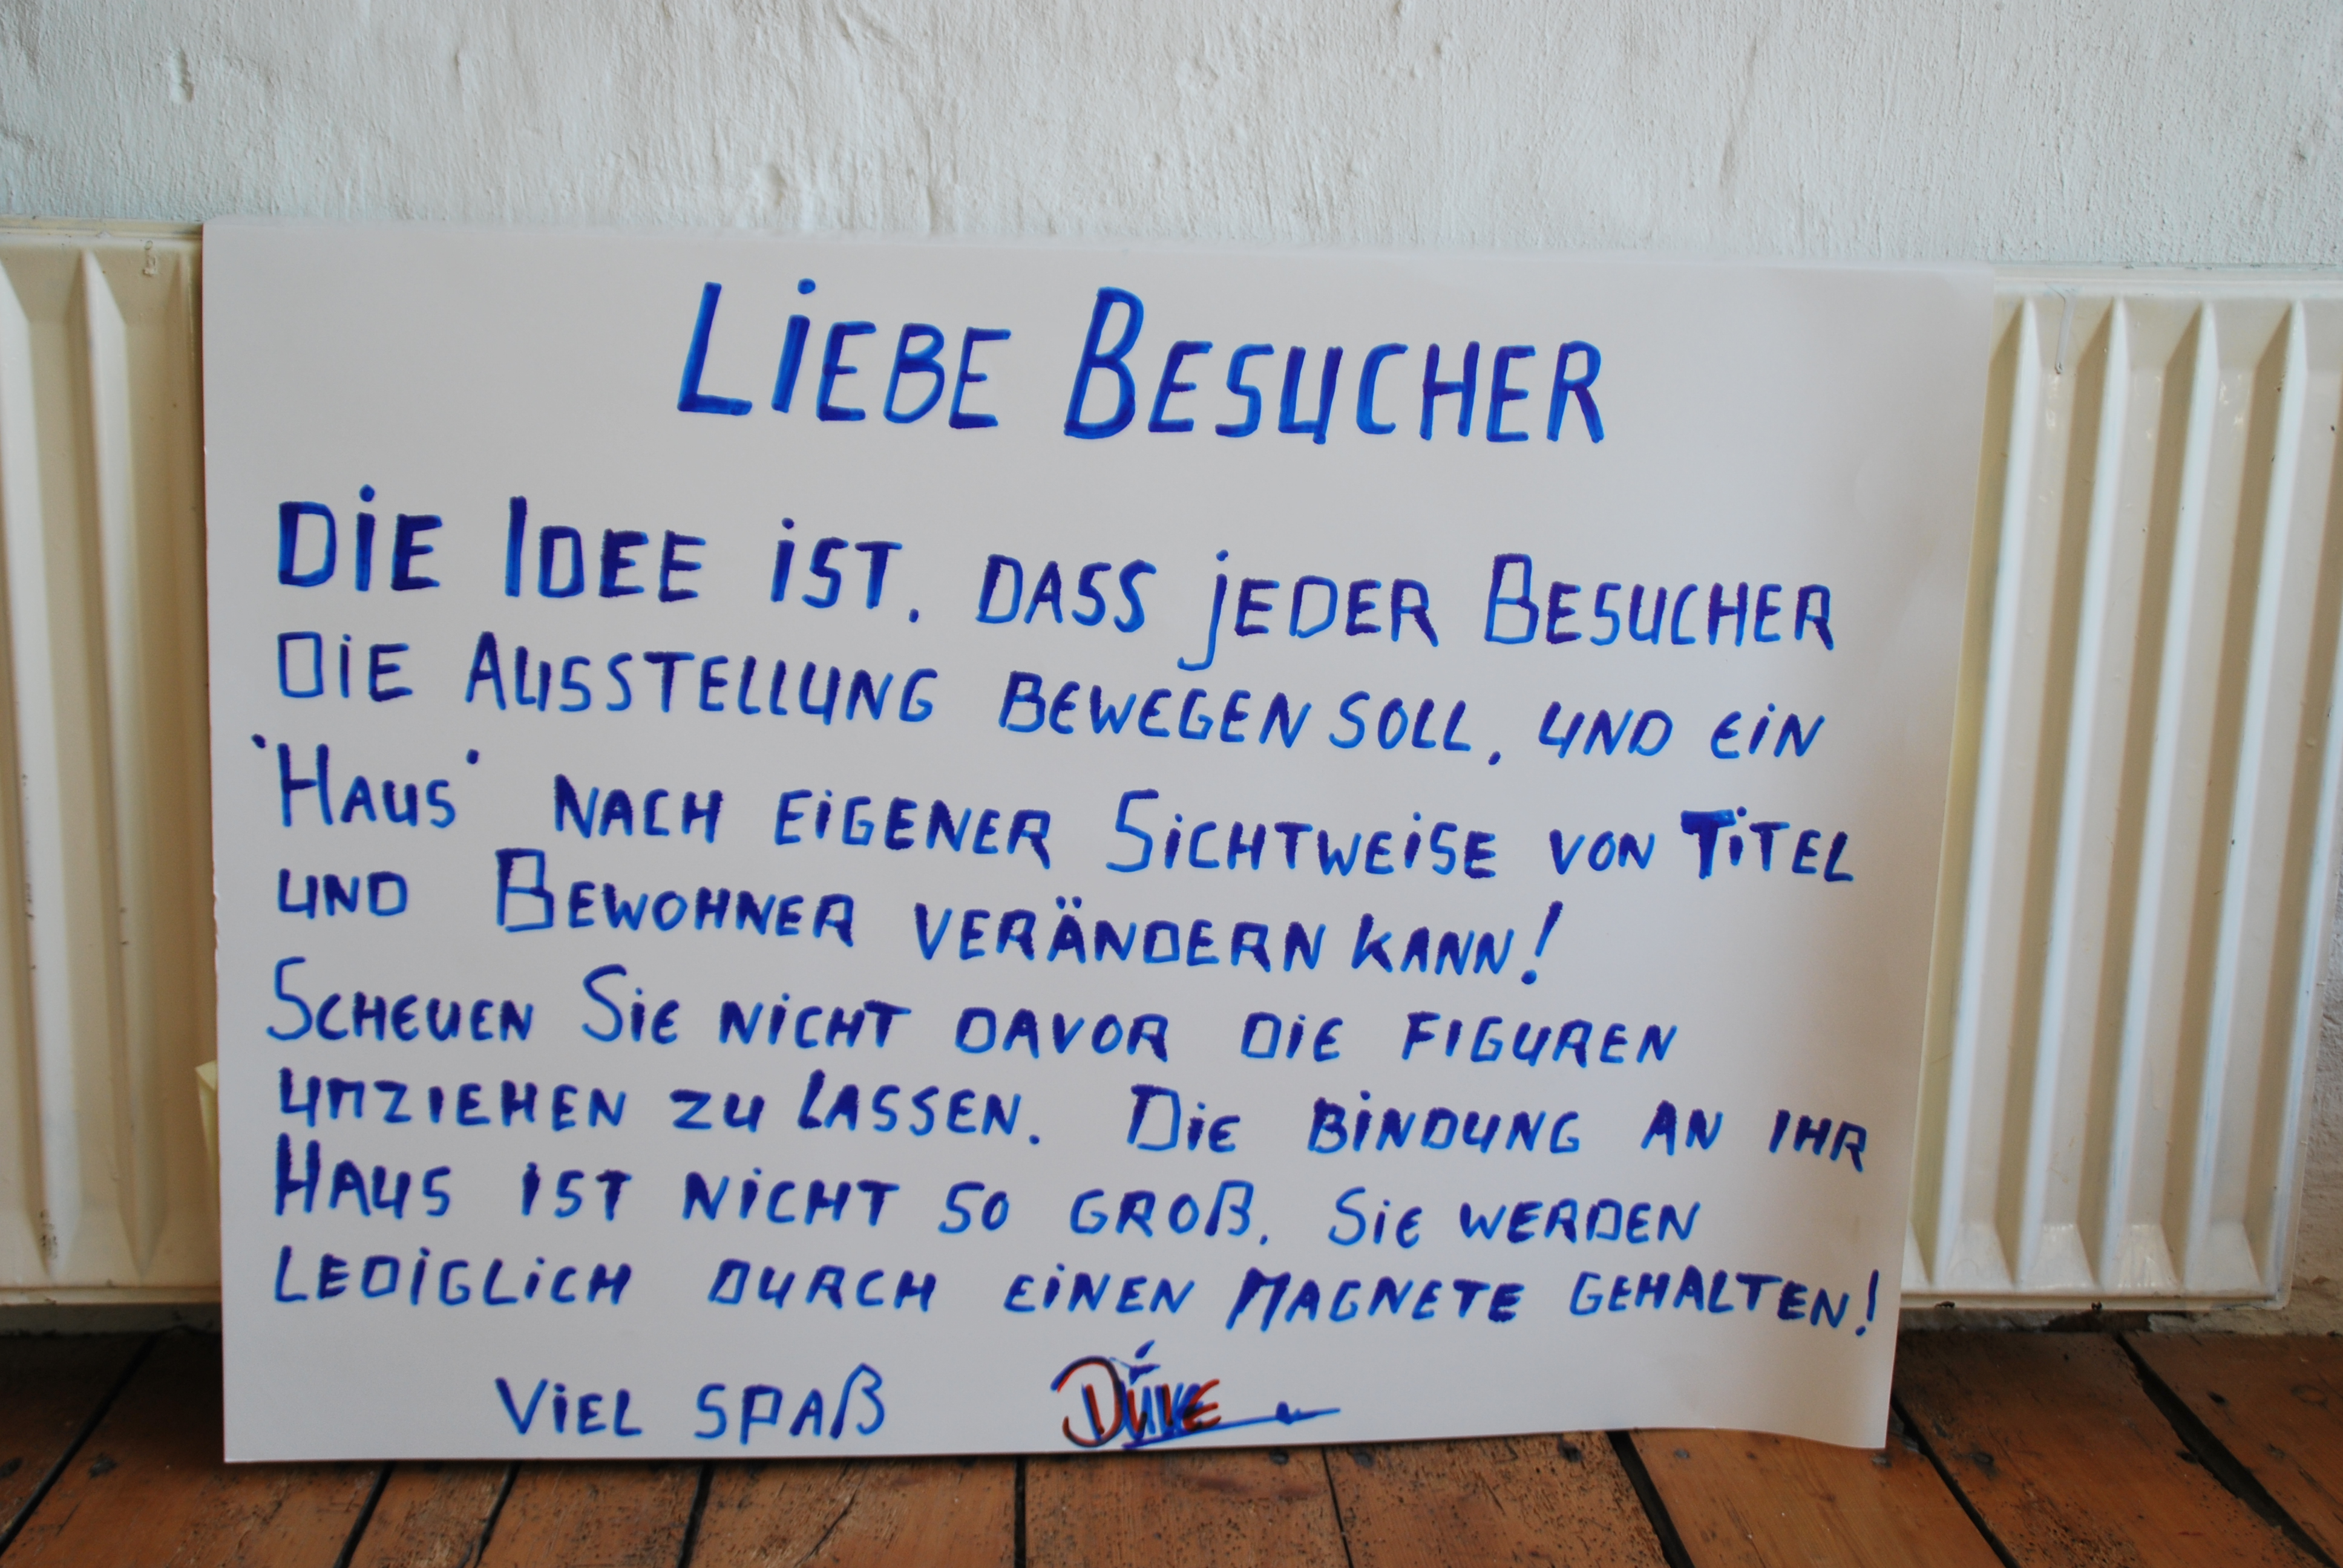 LiEBE BESUCHER
DiE IDEE iST, DASS jEDER BESUCHER
DiE AUSSTELLUNG BEWEGEN SOLL, UND EiN
'HAUS' NACH EiGENER SiCHTWEiSE VON TiTEL
UND BEWOHNER VERÄNDERN KANN!
SCHEUEN SiE NiCHT DAVOR DiE FIGUREN
UMZIEHEN ZU LASSEN. DiE BiNDUNG AN IHR
HAUS IST NiCHT SO GROß. SiE WERDEN
LEDiGLiCH DURCH EiNEN MAGNETE GEHALTEN!
ViEL SPAß